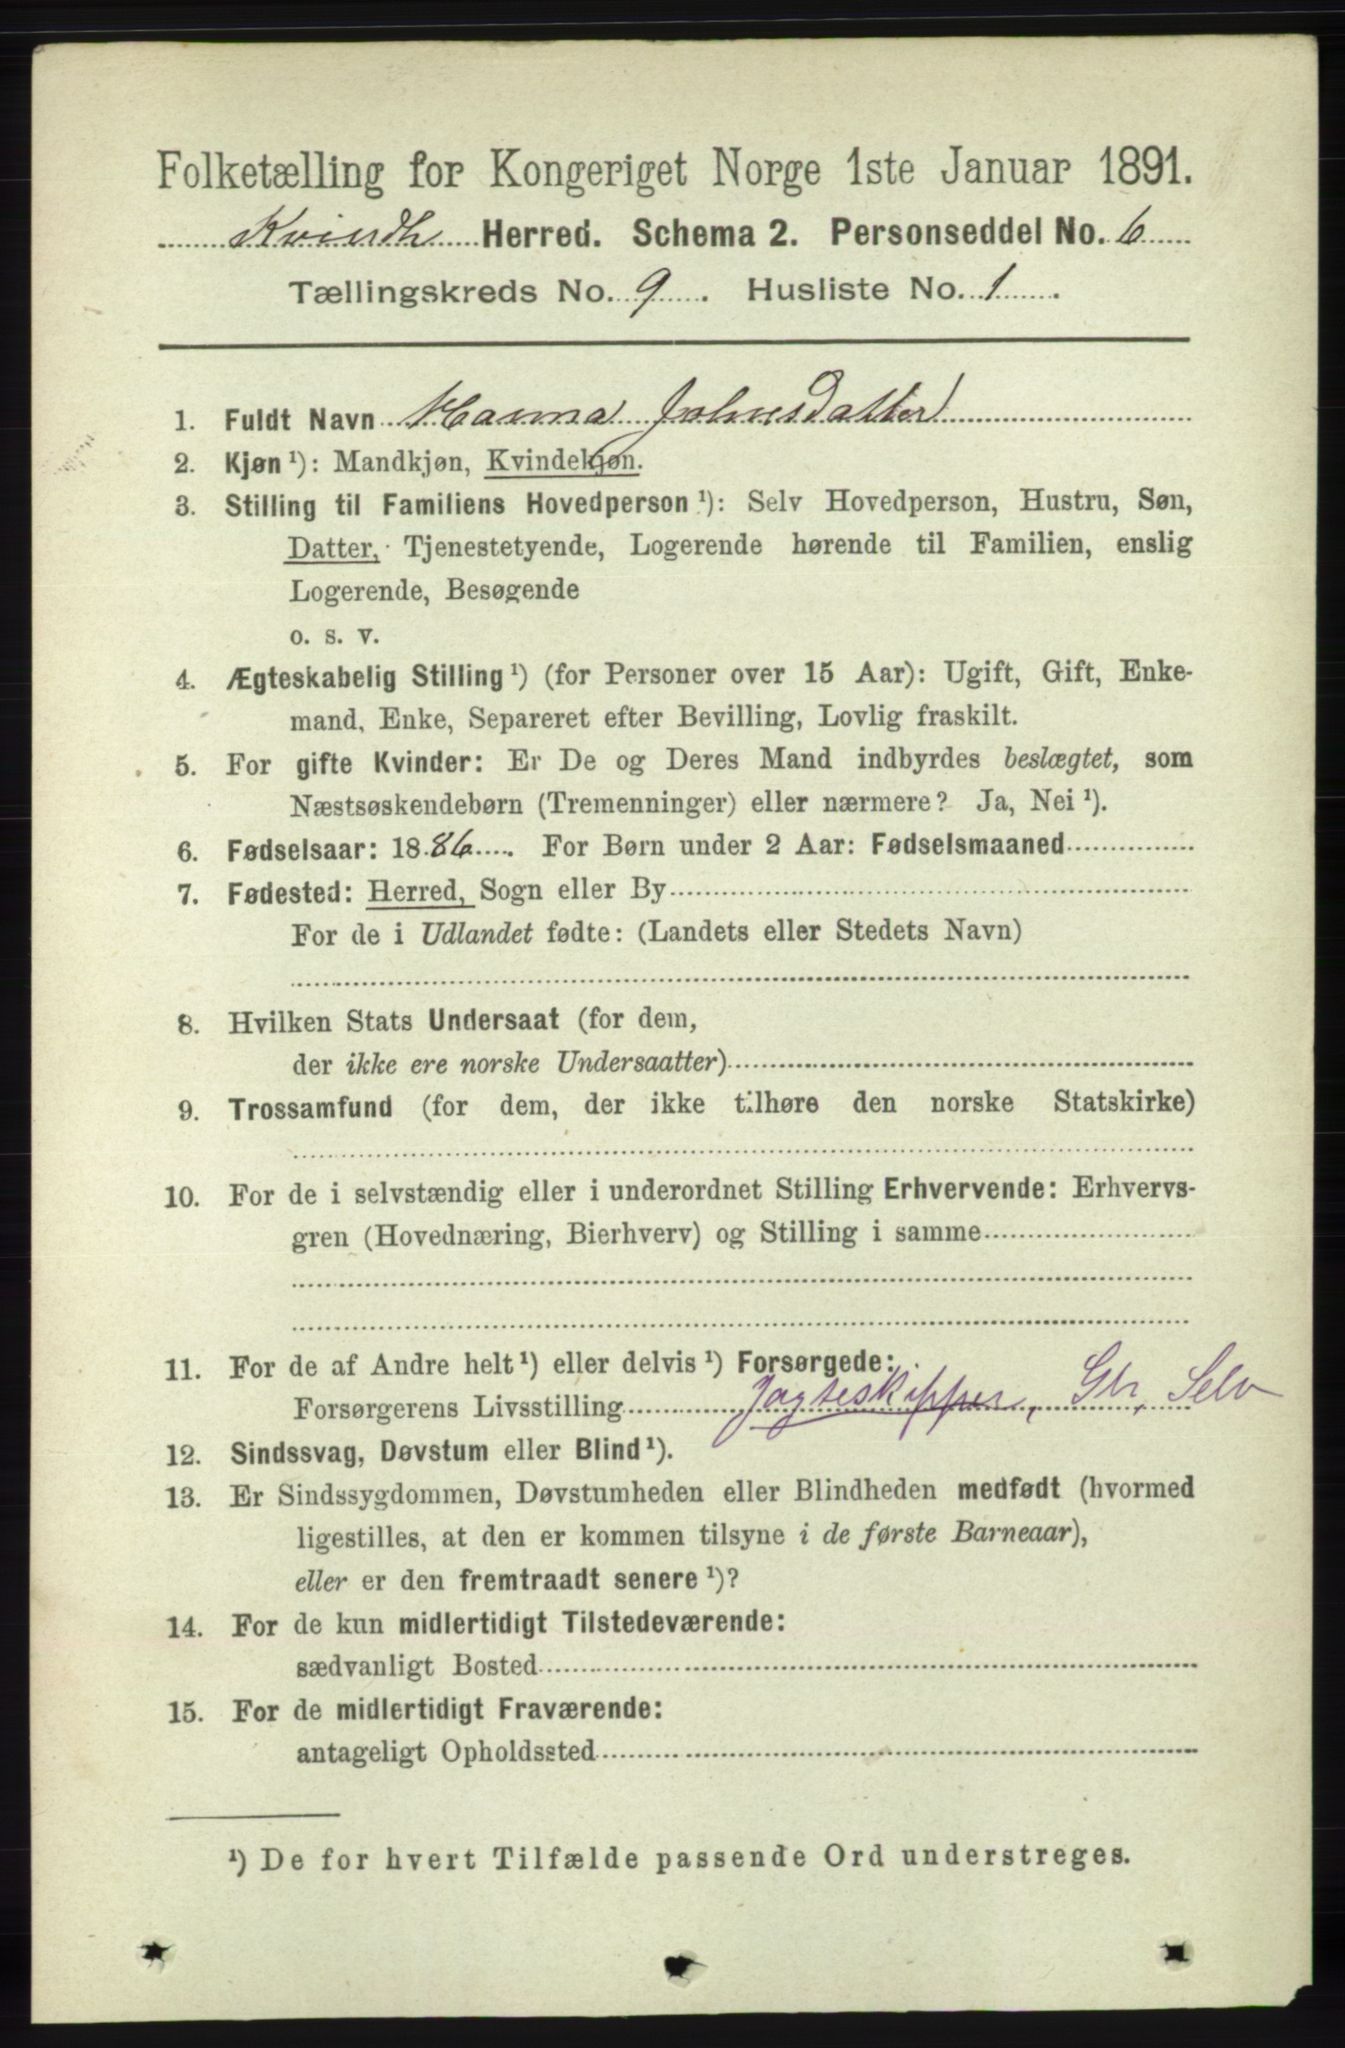 Folketælling for Kongeriget Norge 1ste Januar 1891.
Kvindh Herred. Schema 2. Personseddel No. 6
Tællingskreds No. 9. Husliste No. 1.
1. Fuldt Navn Hanna Johnsdatter
2. Kjøn ¹): Mandkjøn, Kvindekjøn.
3. Stilling til Familiens Hovedperson ¹): Selv Hovedperson, Hustru, Søn,
Datter, Tjenestetyende, Logerende hørende til Familien, enslig
Logerende, Besøgende
o. s. v.
4. Ægteskabelig Stilling ¹) (for Personer over 15 Aar): Ugift, Gift, Enke-
mand, Enke, Separeret efter Bevilling, Lovlig fraskilt.
5. For gifte Kvinder: Er De og Deres Mand indbyrdes beslægtet, som
Næstsøskendebørn (Tremenninger) eller nærmere? Ja, Nei ¹).
6. Fødselsaar: 1886. For Børn under 2 Aar: Fødselsmaaned
7. Fødested: Herred, Sogn eller By
For de i Udlandet fødte: (Landets eller Stedets Navn)
8. Hvilken Stats Undersaat (for dem,
der ikke ere norske Undersaatter)
9. Trossamfund (for dem, der ikke tilhøre den norske Statskirke)
10. For de i selvstændig eller i underordnet Stilling Erhvervende: Erhvervs-
gren (Hovednæring, Bierhverv) og Stilling i samme
11. For de af Andre helt ¹) eller delvis ¹) Forsørgede:
Forsørgerens Livsstilling Jagteskipper, Gbr, Selv
12. Sindssvag, Døvstum eller Blind ¹).
13. Er Sindssygdommen, Døvstumheden eller Blindheden medfødt (hvormed
ligestilles, at den er kommen tilsyne i de første Barneaar),
eller er den fremtraadt senere ¹)?
14. For de kun midlertidigt Tilstedeværende:
sædvanligt Bosted
15. For de midlertidigt Fraværende:
antageligt Opholdssted
¹) De for hvert Tilfælde passende Ord understreges.